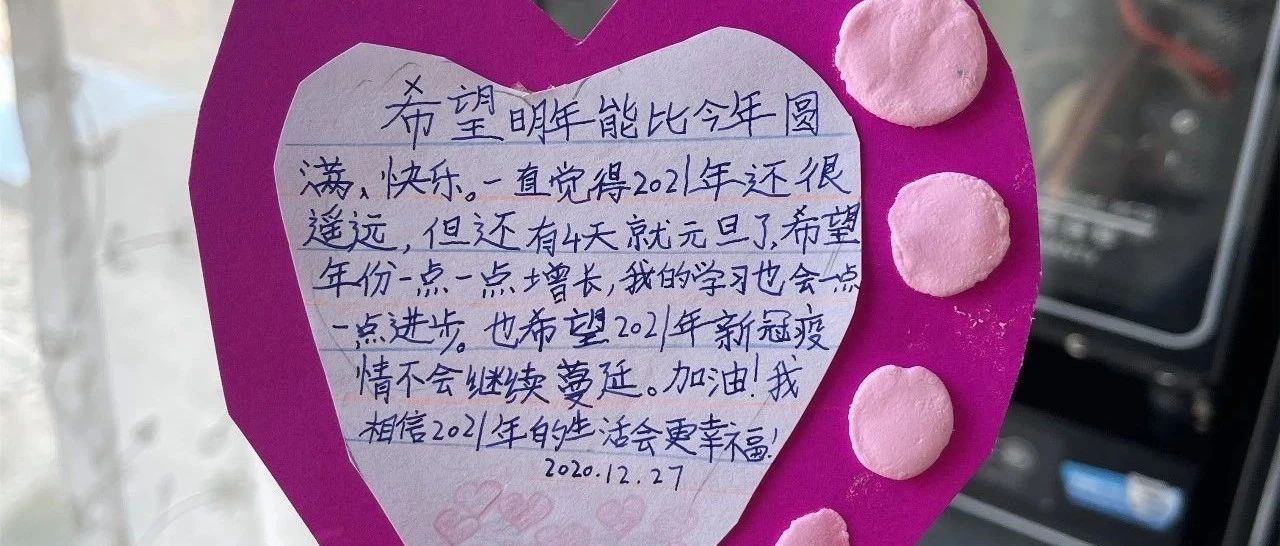 希望明年能比今年圆
满、快乐。一直觉得2021年还很
遥远,但还有4天就元旦了,希望
年份一点一点增长,我的学习也会一点
一点进步。也希望2021年新冠疫
情不会继续蔓延。加油!我
相信2021年的生活会更幸福!
2020.12.27